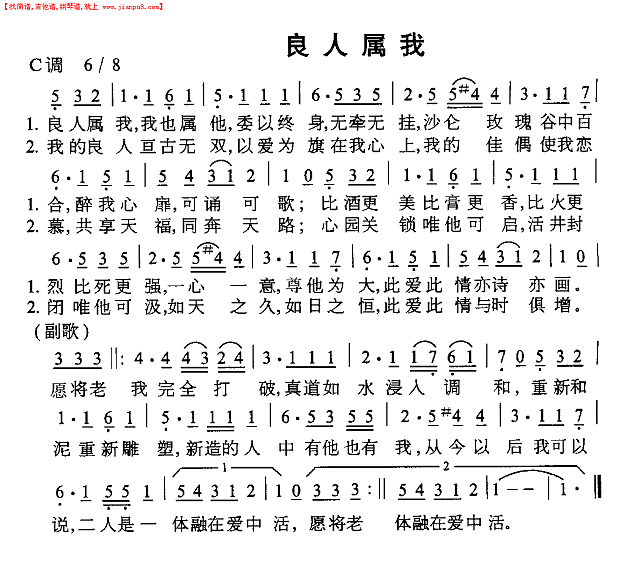 【找简谱,吉他谱,钢琴谱,就上 www.jianpu8.com】
良人属我
C调 6/8
5 32 | 1·1 6 1 | 5·1 1 1 | 6·5 3 5 | 2·5 5 #4 4 | 3·1 1 7 |
1. 良人属 我,我也属 他,委以终 身,无牵无 挂,沙仑 玫 瑰谷中百
2. 我的良 人 亘古无 双,以爱为 旗在我心 上,我的 佳 偶使我恋
6·1 5 1 | 5 4 3 1 2 | 1 0 5 3 2 | 1·1 6 1 | 5·1 1 1 |
1. 合,醉我心 扉,可诵 可 歌；比酒更 美比膏更 香,比火更
2. 慕,共享天 福,同奔 天 路；心园关 锁唯他可 启,活井封
6·5 3 5 | 2·5 5 #4 4 | 3·1 1 7 | 6·1 5 1 | 5 4 3 1 2 | 1 0
1. 烈 比死更 强,一心 一 意,尊他为 大,此爱此 情亦诗 亦 画。
2. 闭 唯他可 汲,如天 之 久,如日之 恒,此爱此 情与时 俱 增。
(副歌)
3 3 3 ‖: 4·4 4 3 2 4 | 3·1 1 1 | 2·1 1 7 6 1 | 7 0 5 3 2 |
愿将老 我 完全 打 破,真道如 水 浸入 调 和，重新和
1·1 6 1 | 5·1 1 1 1 | 6·5 3 5 5 | 2·5 #4 4 | 3·1 1 7 |
泥 重新雕 塑,新造的人 中 有他也有 我,从今以 后我可以
1 2
6·1 5 5 1 | 5 4 3 1 2 | 1 0 3 3 3 :‖ 5 4 3 1 2 | 1 - - | 1· ‖
说,二人是一 体融在爱中 活，愿将老 体融在爱中 活。